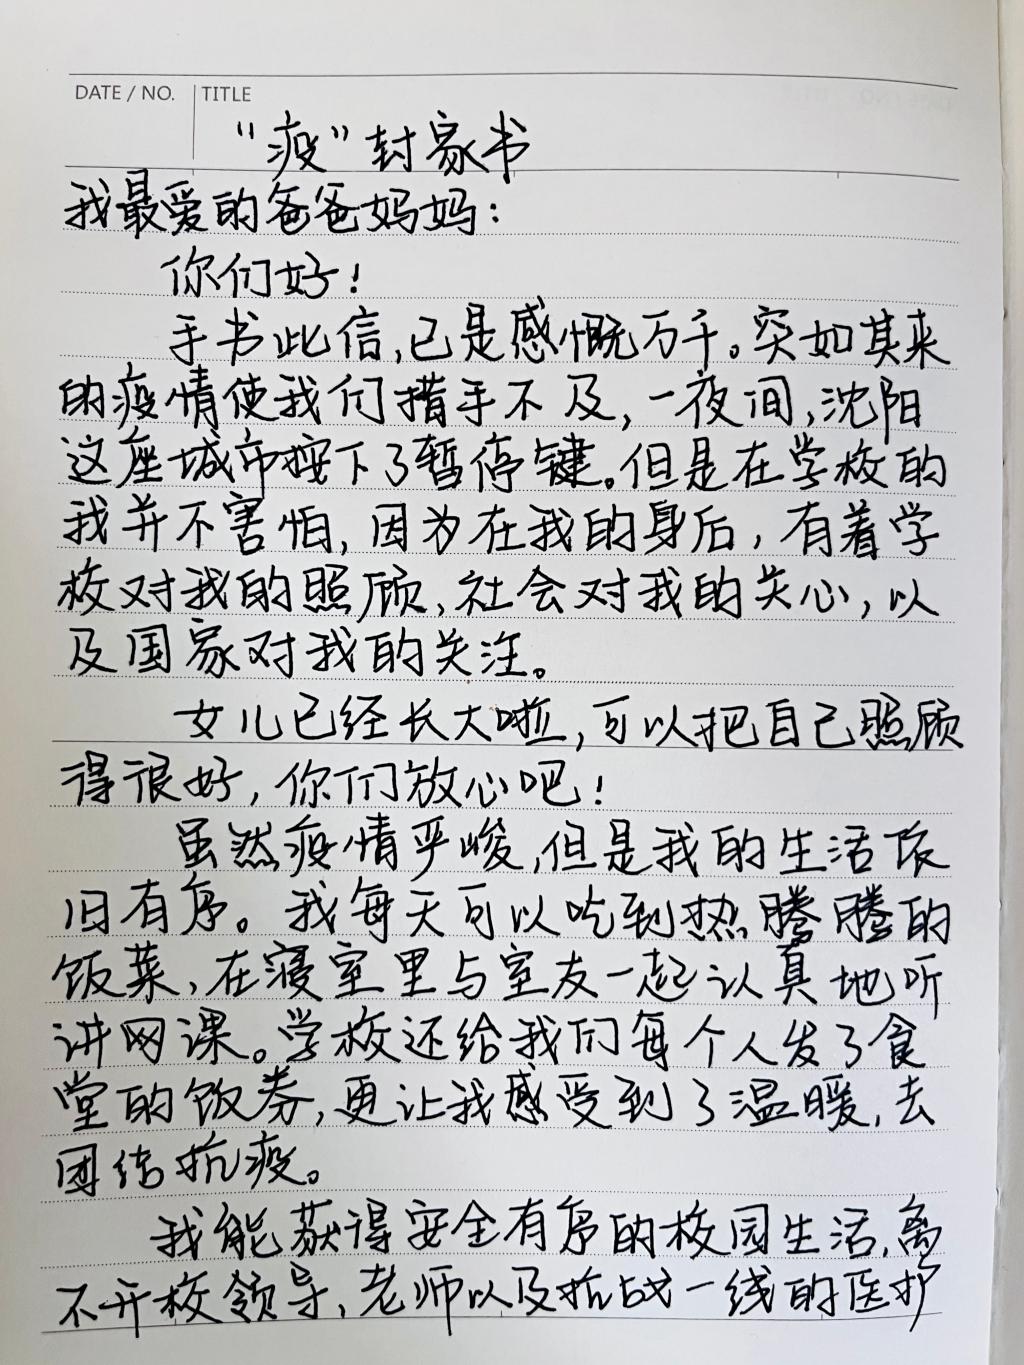 DATE / NO. TITLE
“疫”封家书
我最爱的爸爸妈妈：
你们好！
手书此信,已是感慨万千。突如其来
的疫情使我们措手不及,一夜间,沈阳
这座城市按下了暂停键。但是在学校的
我并不害怕,因为在我的身后,有着学
校对我的照顾,社会对我的关心,以
及国家对我的关注。
女儿已经长大啦,可以把自己照顾
得很好,你们放心吧！
虽然疫情严峻,但是我的生活依
旧有序。我每天可以吃到热腾腾的
饭菜,在寝室里与室友一起认真地听
讲网课。学校还给我们每个人发了食
堂的饭券,更让我感受到了温暖,去
团结抗疫。
我能获得安全有序的校园生活,离
不开校领导,老师以及抗战一线的医护